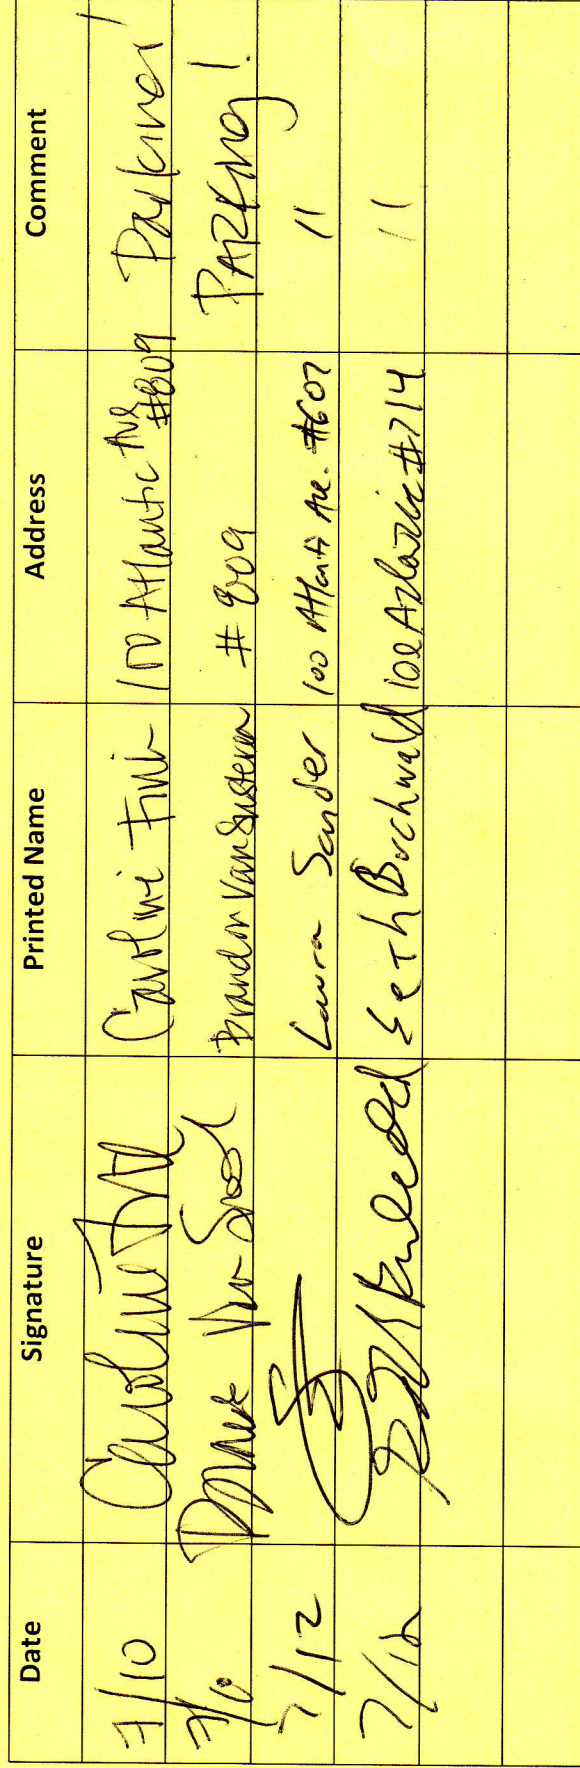 Date Signature Printed Name Address Comment
7/10 Caroline 100 Atlantic Ave #809 Parking!
7/10 Brandon Van Susteren #809 PARKING!
7/12 Laura Sander 100 Atlantic Ave. #607 "
7/12 Seth Buchwald 100 Atlantic #714 "